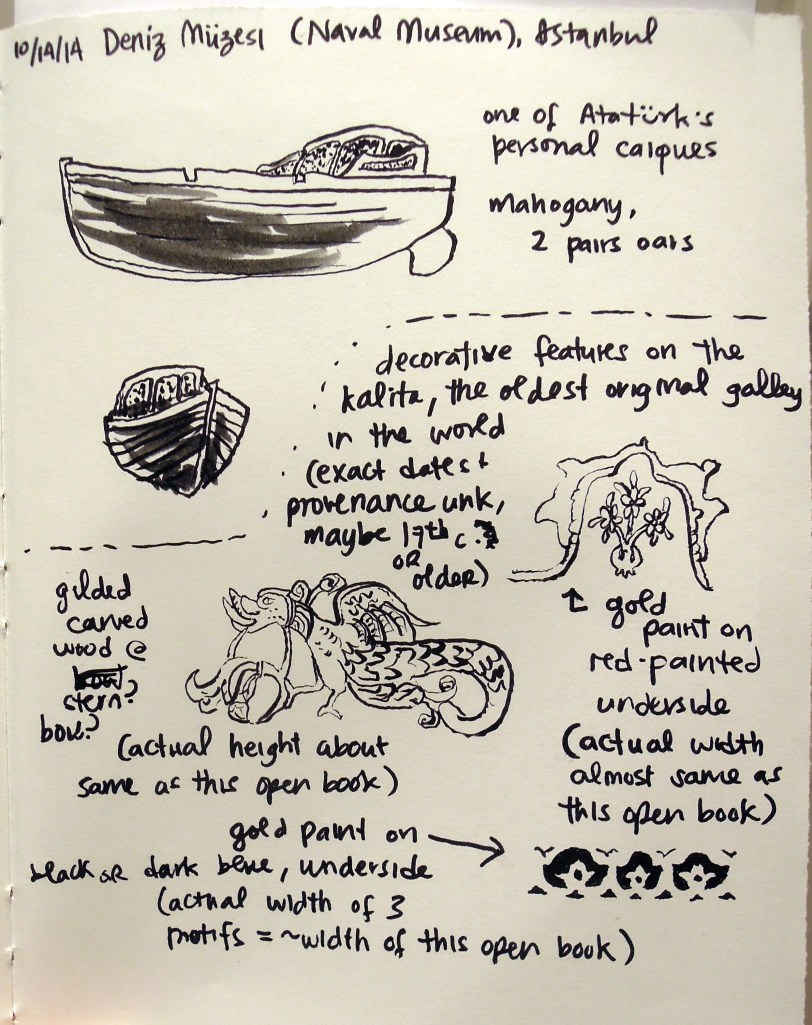 10/14/14 Deniz Müzesi (Naval Museum), Istanbul
one of Atatürk's
personal caiques
mahogany,
2 pairs oars
decorative features on the
kalita, the oldest original galley
in the world
(exact dates +
provenance unk,
maybe 17th c.
or
older)
gilded
carved
wood @
stern?
bow?
(actual height about
same as this open book)
↑ gold
paint on
red-painted
underside
(actual width
almost same as
this open book)
gold paint on →
black or dark blue, underside
(actual width of 3
motifs = ~width of this open book)